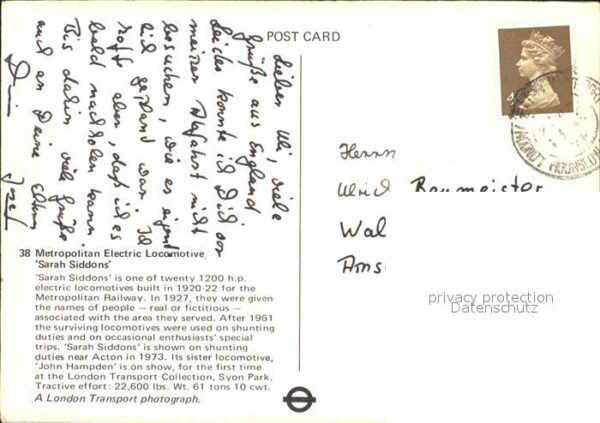 POST CARD
Lieber Uli, viele
Grüße aus England
Leider konnte ich Dich vor
meiner Abfahrt nicht
besuchen, wie es eigent
lich geplant war. Ich
hoffe aber, daß ich es
bald nachholen kann
Bis dahin viele Grüße
auch an Deine Eltern
Dein Josef
4
HOUNSLOW
Herrn
Ulrich Baumeister
Wal
Ams
privacy protection
Datenschutz
38 Metropolitan Electric Locomotive,
'Sarah Siddons'
'Sarah Siddons' is one of twenty 1200 h.p.
electric locomotives built in 1920-22 for the
Metropolitan Railway. In 1927, they were given
the names of people – real or fictitious –
associated with the area they served. After 1961
the surviving locomotives were used on shunting
duties and on occasional enthusiasts' special
trips. 'Sarah Siddons' is shown on shunting
duties near Acton in 1973. Its sister locomotive,
'John Hampden' is on show, for the first time
at the London Transport Collection, Syon Park.
Tractive effort: 22,600 lbs. Wt. 61 tons 10 cwt.
A London Transport photograph.